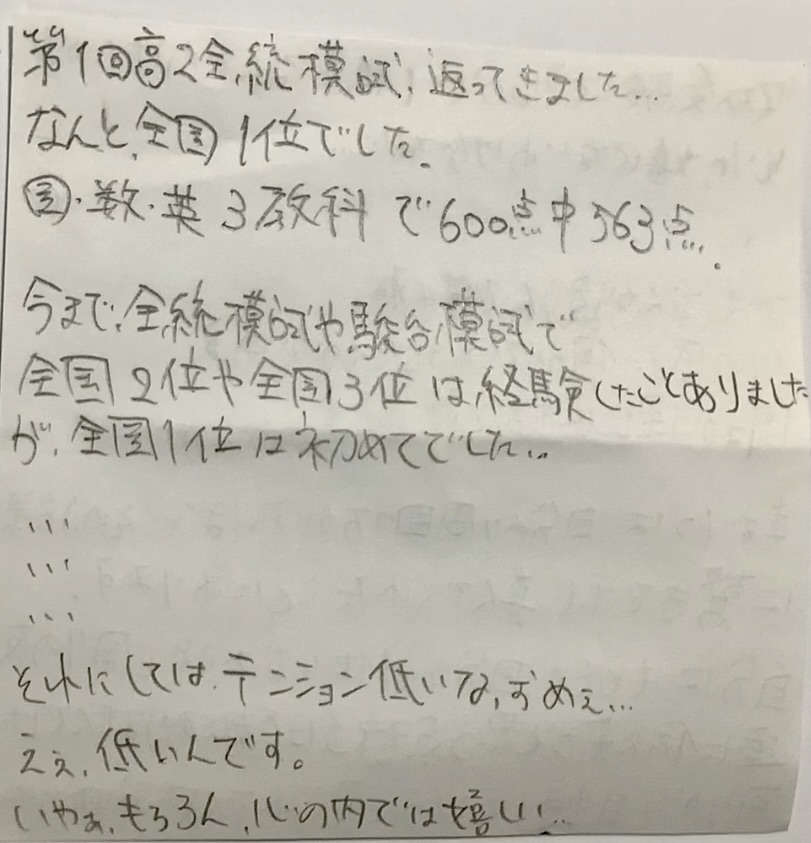 第1回高2全統模試、返ってきました…
なんと、全国1位でした。
国・数・英3教科で600点中563点。
今まで、全統模試や駿台模試で
全国2位や全国3位は経験したことありました
が、全国1位は初めてでした…
…
…
…
それにしては、テンション低いな、おめぇ…
ええ、低いんです。
いやぁ、もちろん、心の内では嬉しい…